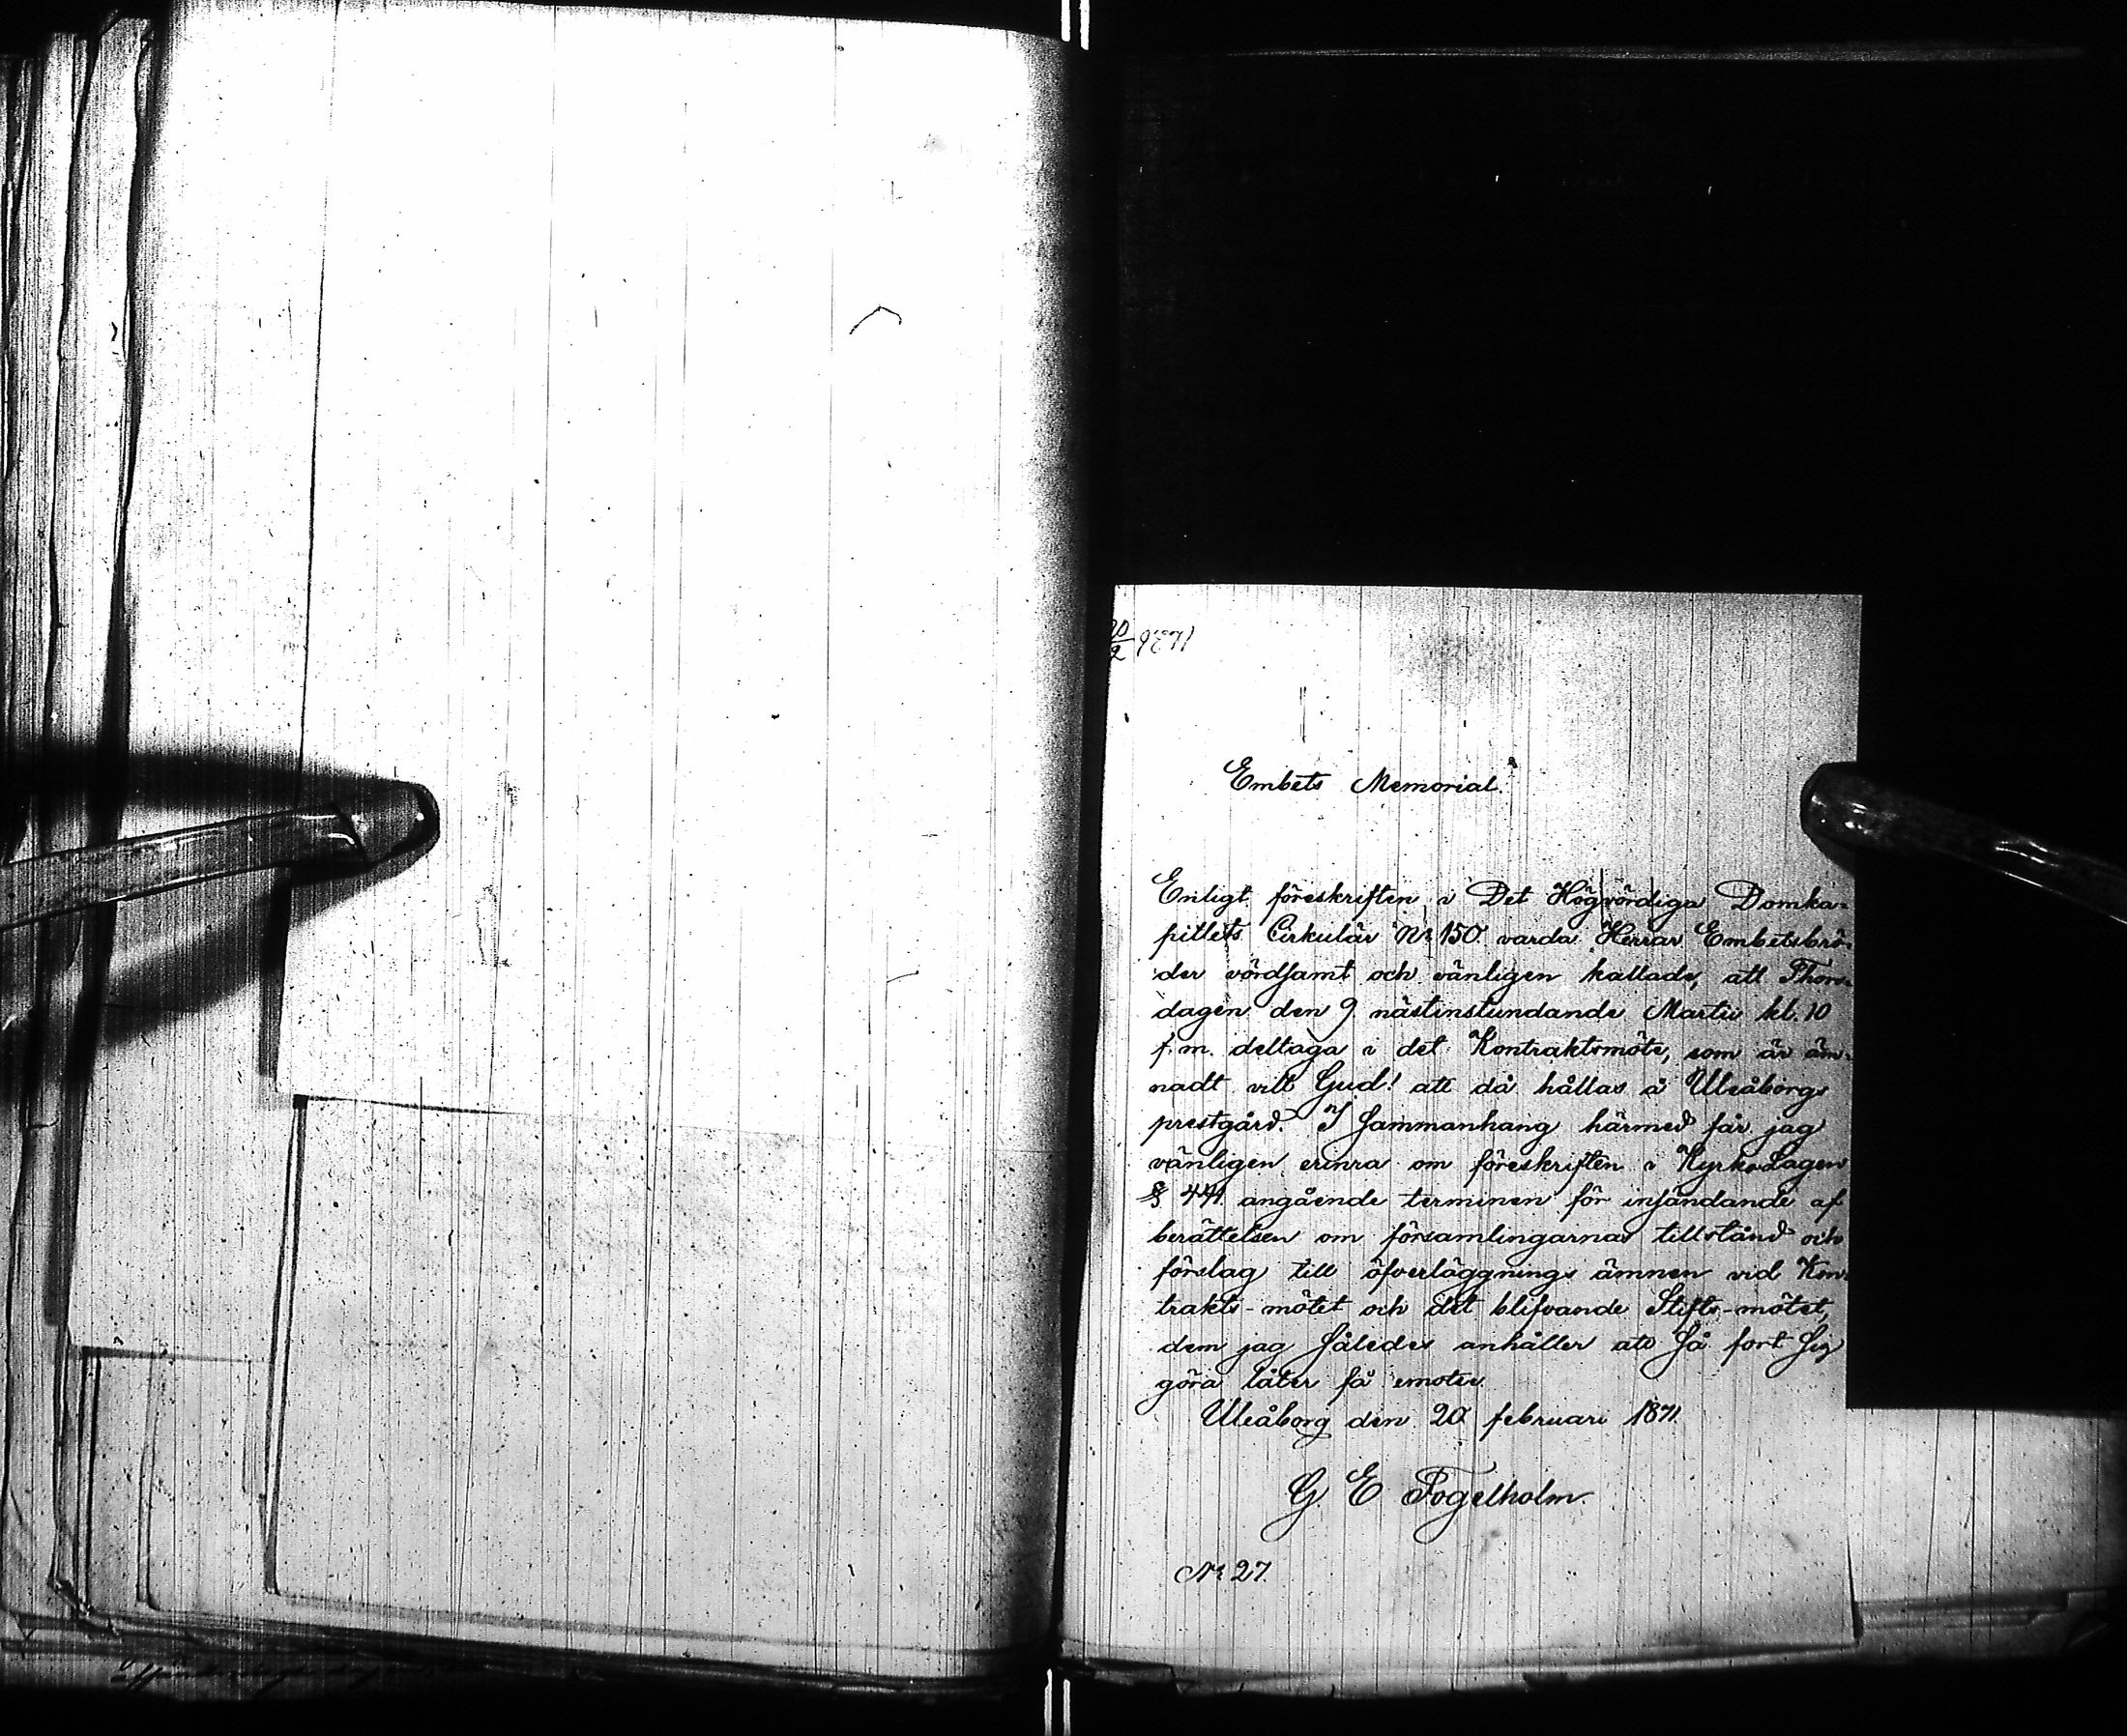 20/2 1871
Embets Memorial.
Enligt föreskriften i Det Högvördiga Domka=
pitlets Cirkulär No 150. varda Herrar Embetsbrö=
der vördsamt och vänligen kallade, att Thors=
dagen den 9 nästinstundande Martii kl. 10
f.m. deltaga i det Kontraktsmöte, som är äm=
nadt vill Gud! att då hållas å Uleåborgs
prestgård. I sammanhang härmed får jag
vänligen erinra om föreskriften i KyrkoLagen
§ 441 angående terminen för insändande af
berättelsen om församlingarnas tillstånd och
förslag till öfverläggnings ämnen vid Kon=
trakts-mötet och det blifvande Stifts-mötet,
dem jag således anhåller att så fort sig
göra låter få emotse.
Uleåborg den 20 februari 1871.
G. E. Fogelholm.
No 27.